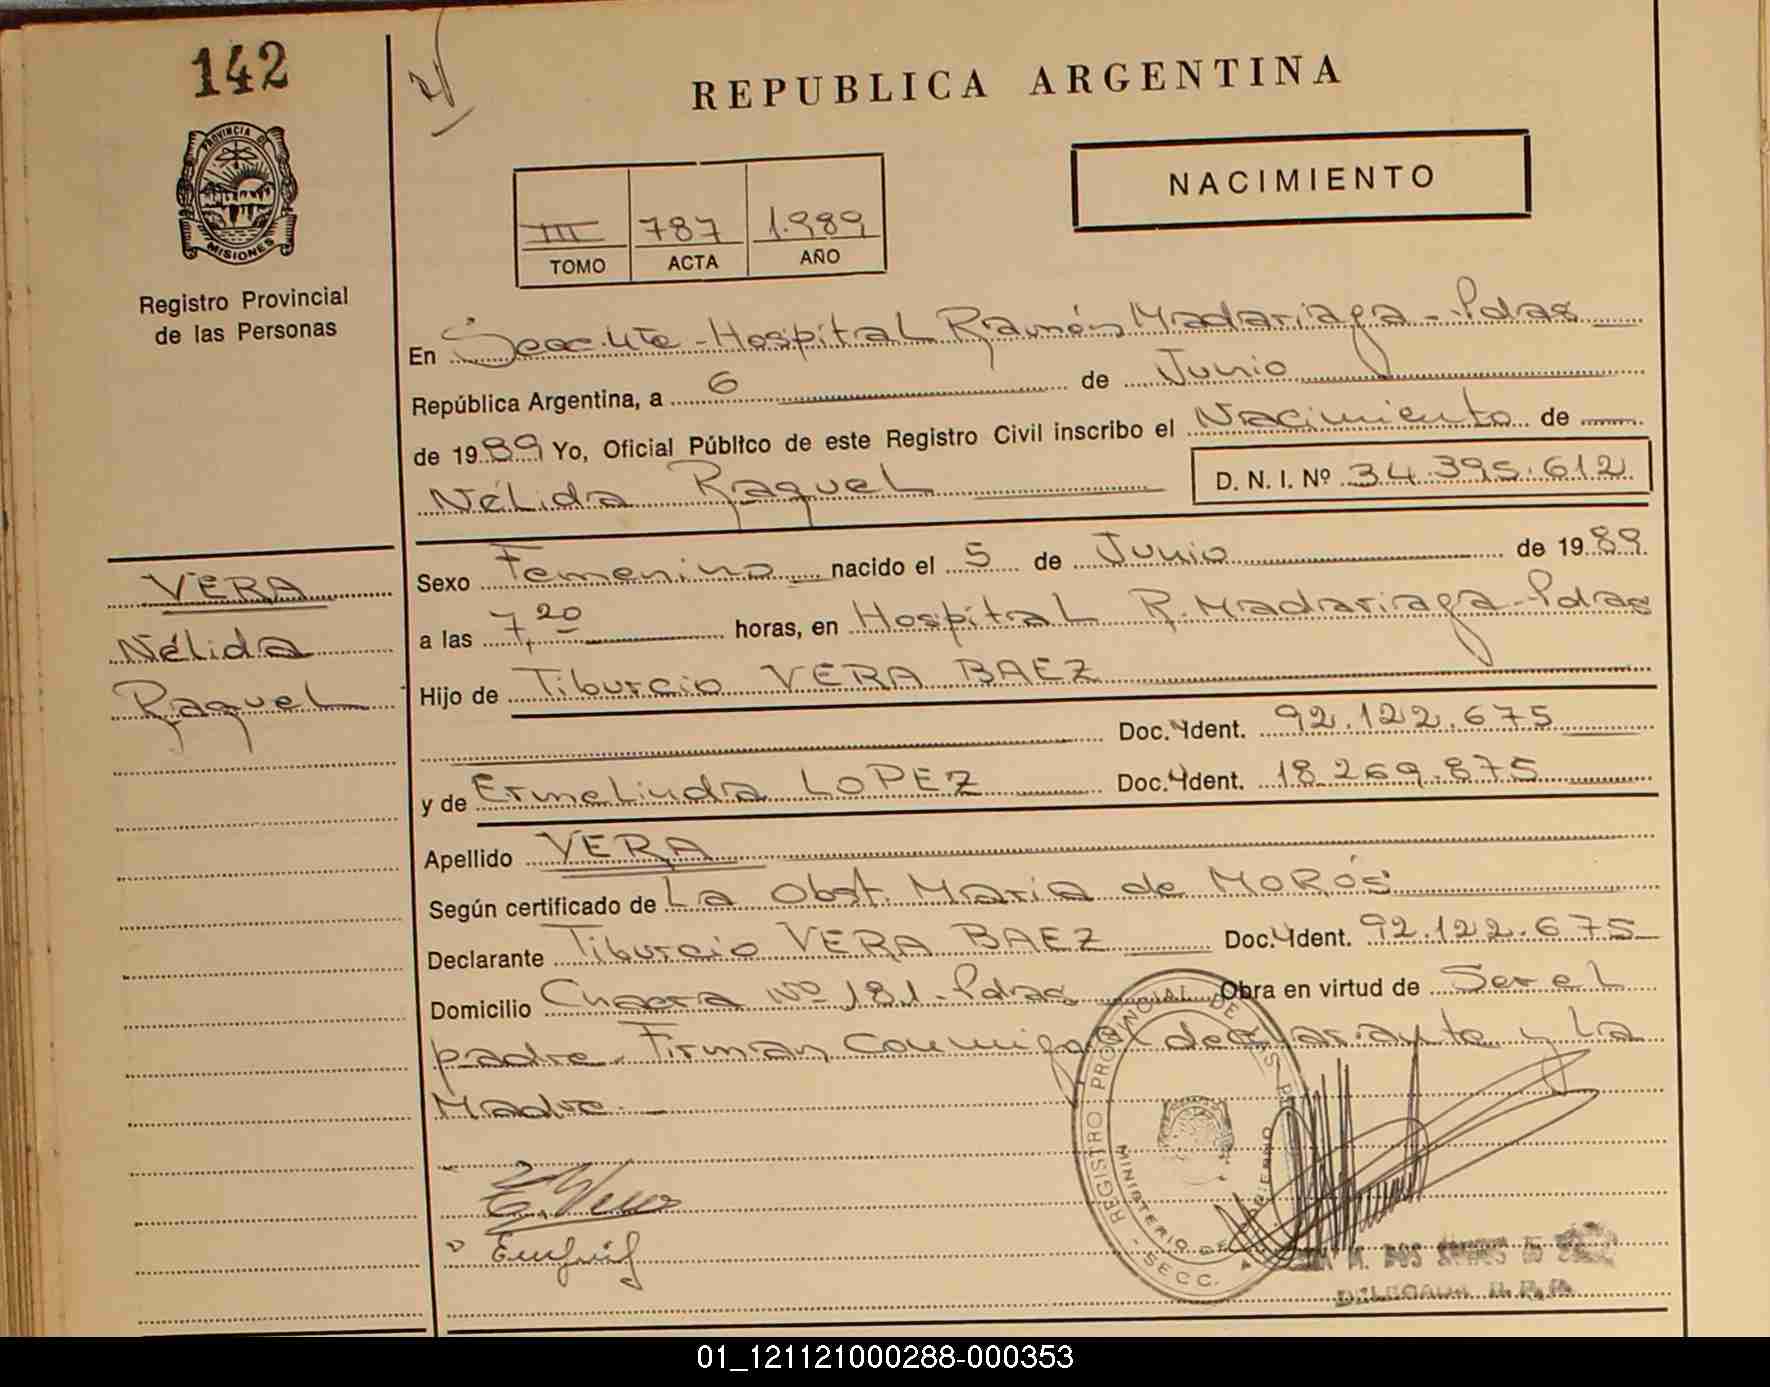 142
PROVINCIA DE
MISIONES
Registro Provincial
de las Personas
REPUBLICA ARGENTINA
NACIMIENTO
III 787 1.989
TOMO ACTA AÑO
En Secc. 4ta - Hospital Ramón Madariaga - Pdas
República Argentina, a 6 de Junio
de 1989 Yo, Oficial Público de este Registro Civil inscribo el Nacimiento de
Nélida Raquel D. N. I. Nº 34.395.612
VERA
Nélida
Raquel
Sexo Femenino nacido el 5 de Junio de 1989
a las 7,20 horas, en Hospital R. Madariaga - Pdas
Hijo de Tiburcio VERA BAEZ
Doc. Ident. 92.122.675
y de Ermelinda LOPEZ Doc. Ident. 18.269.875
Apellido VERA
Según certificado de La Obst. Maria de MORÓS
Declarante Tiburcio VERA BAEZ Doc. Ident. 92.122.675
Domicilio Chacra Nº 181 - Pdas Obra en virtud de Ser el
padre. Firman Conmigo el declarante y La
Madre. -
REGISTRO PROVINCIAL DE LAS
MINISTERIO DE GOBIERNO
SECC. 4
DELEGADA R. P. P.
01_121121000288-000353